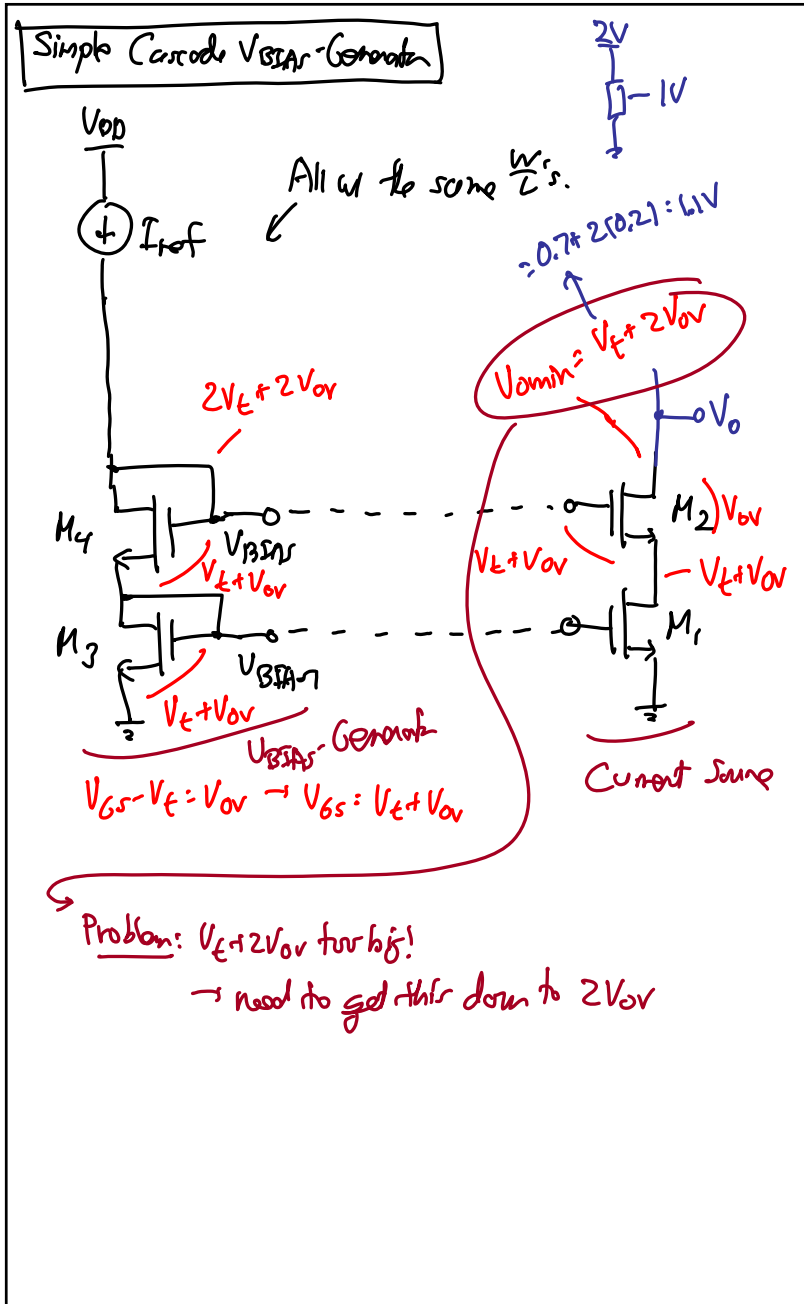 Simple Cascode VBIAS-Generator
2V
1V
VDD
All w/ the same W/L's.
Iref
= 0.7 + 2(0.2) = 1.1V
Vomin = Vt + 2Vov
2Vt + 2Vov
Vo
M4
VBIAS
Vt + Vov
Vt + Vov
M2
Vov
Vt + Vov
M3
VBIAS1
M1
Vt + Vov
VBIAS-Generator
Current Source
VGS - Vt = Vov → VGS = Vt + Vov
Problem: Vt + 2Vov too big!
→ need to get this down to 2Vov